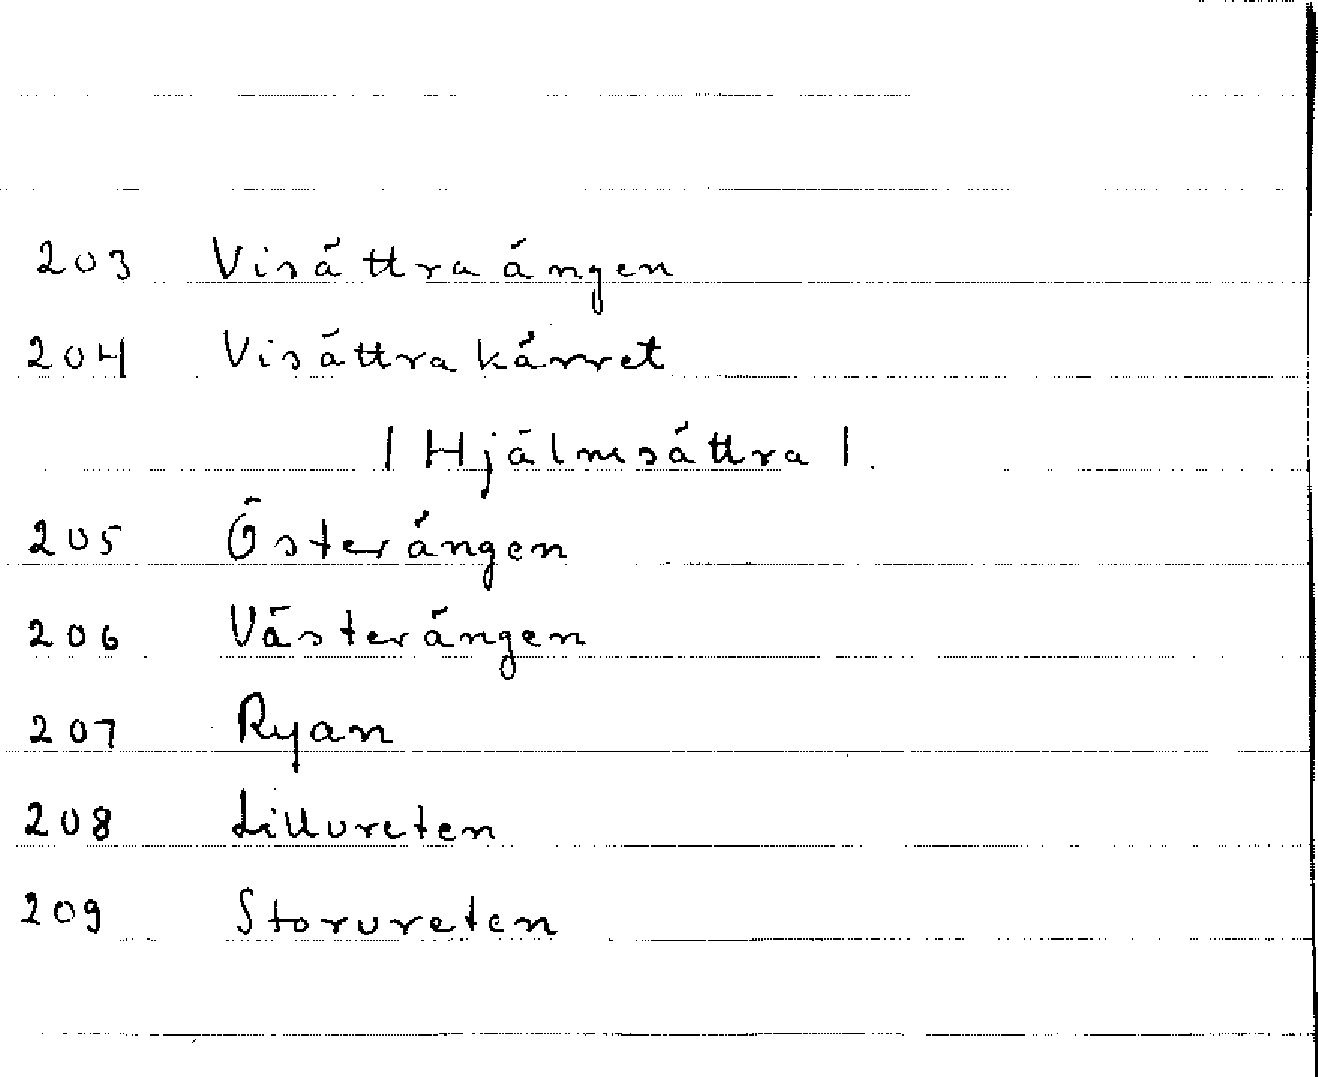 203 Visättraängen
204 Visättrakärret
| Hjälmsättra |
205 Österängen
206 Västerängen
207 Ryan
208 Lillvreten
209 Storvreten